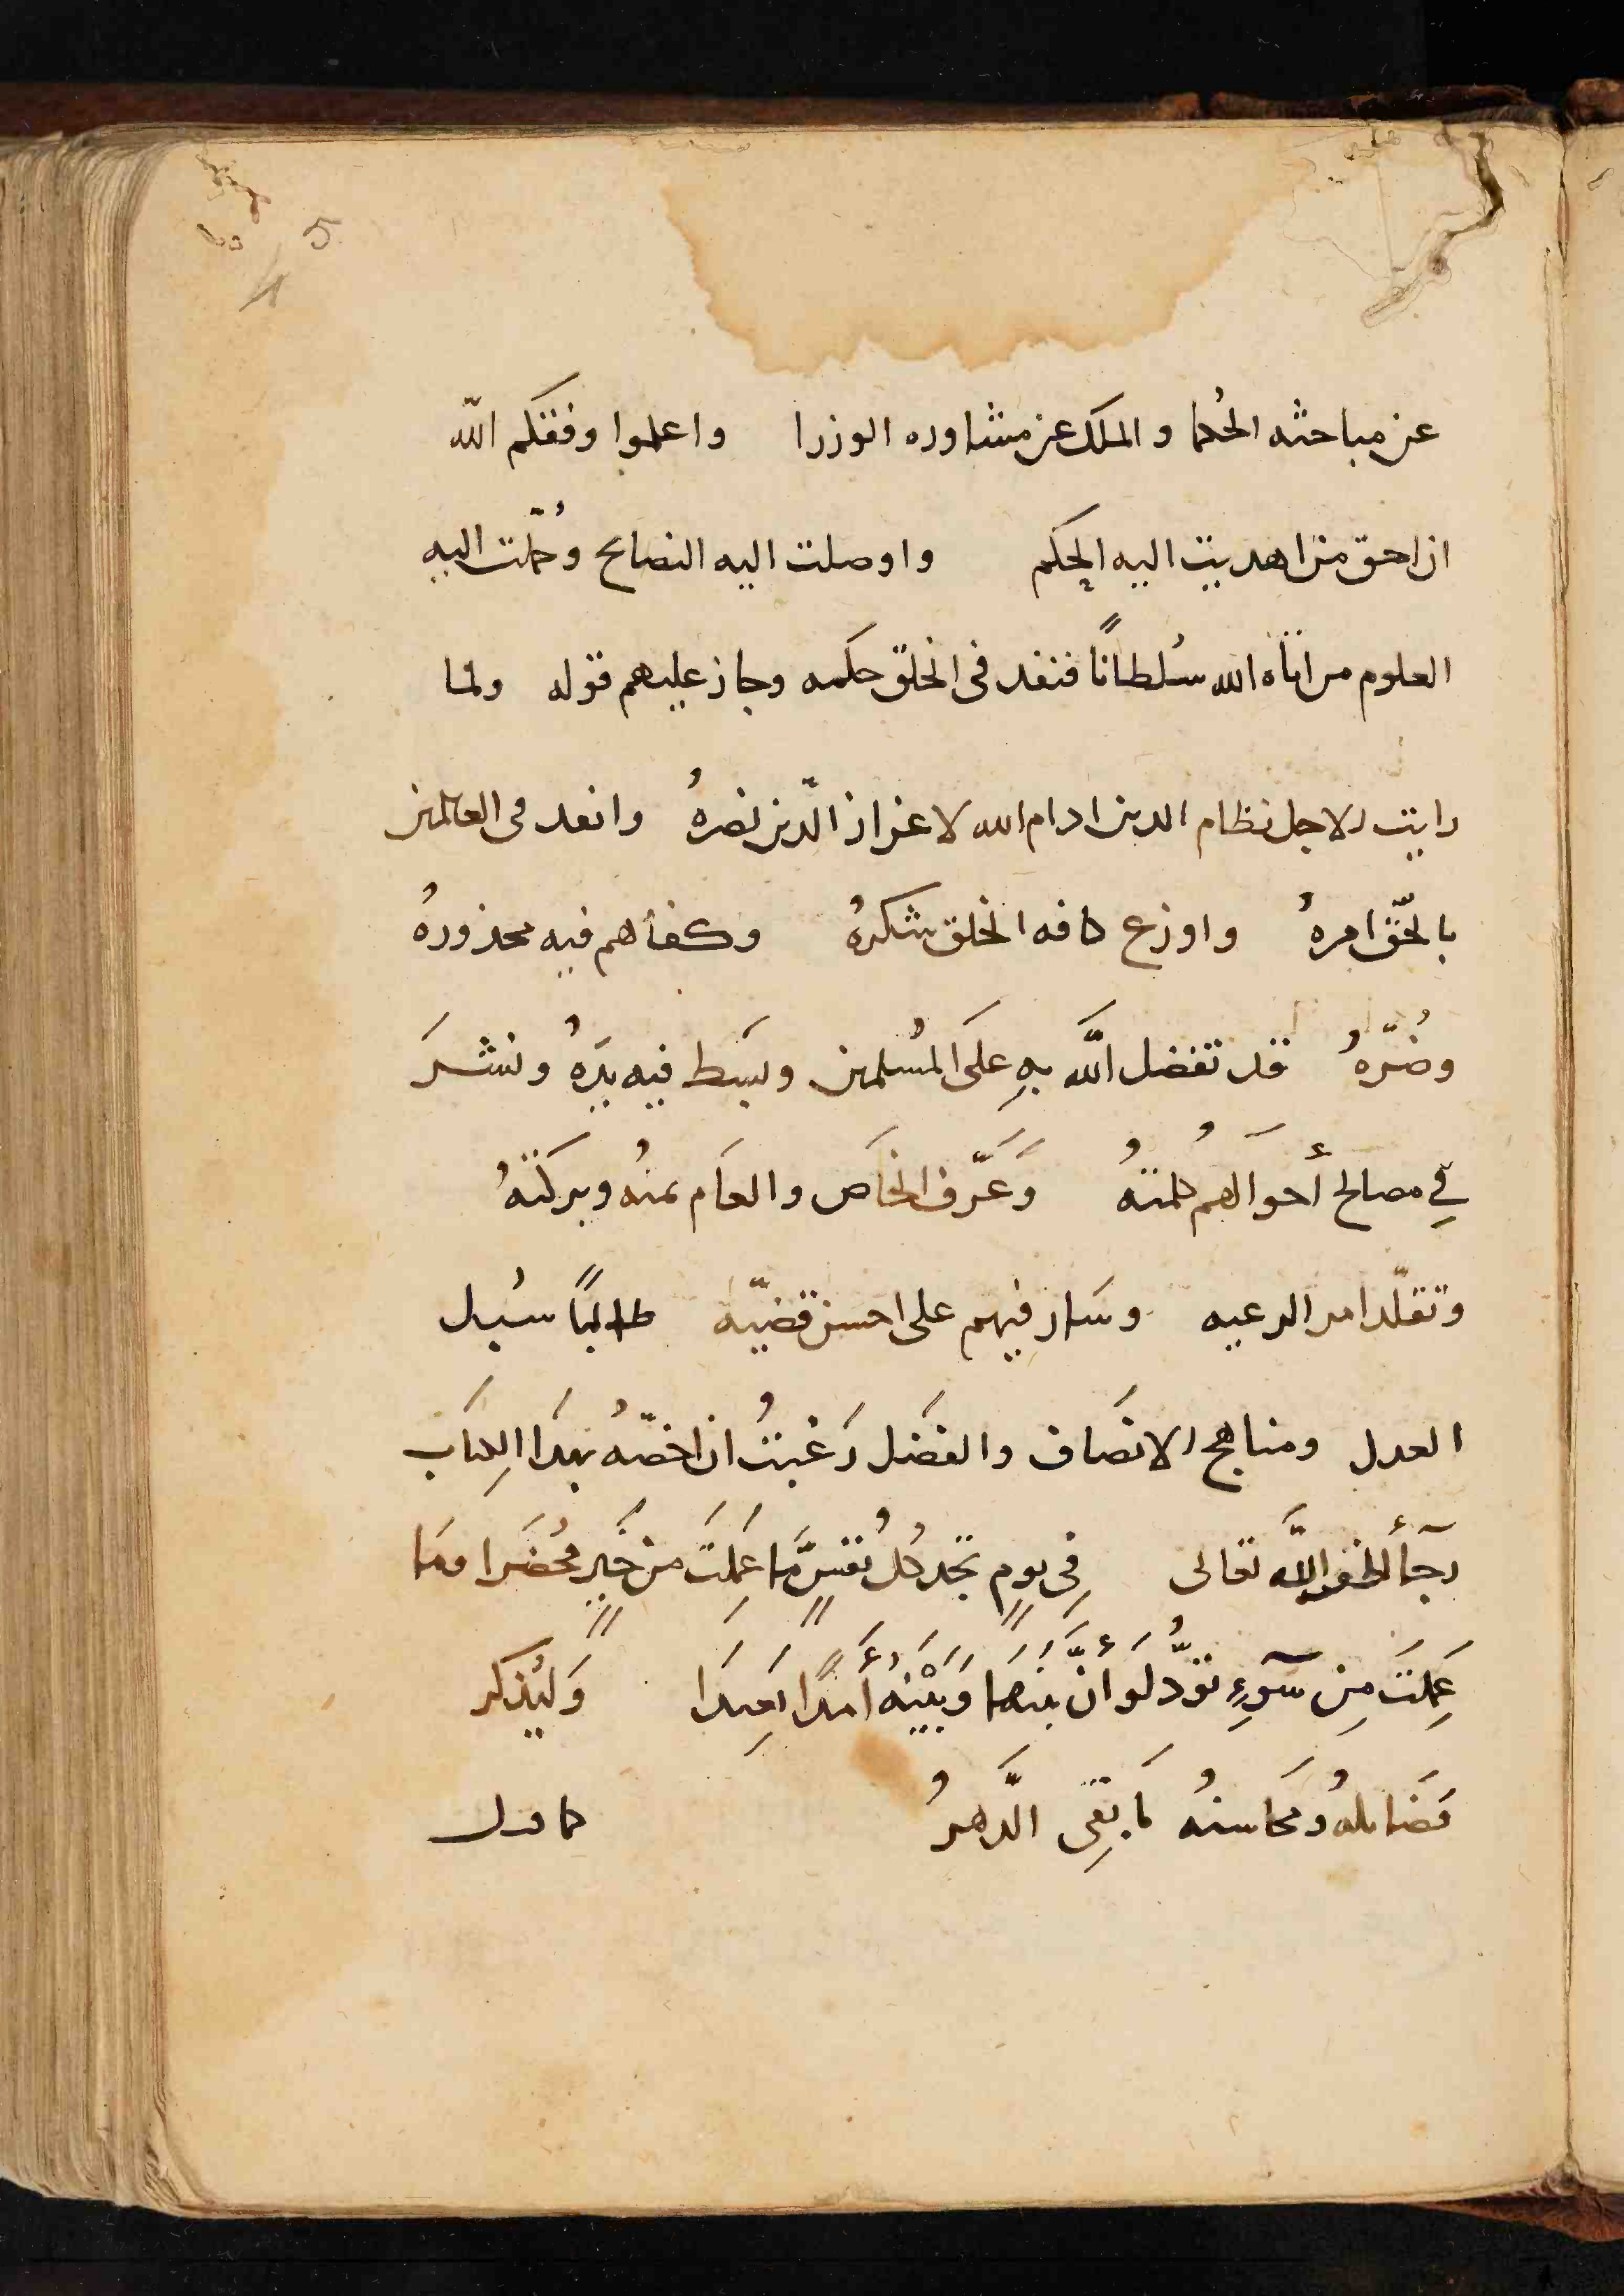 5
عن مباحثه الحُكما والملك عن مشاوره الوزرا واعلموا وفقكم الله
ان احق من اهديت اليه الحِكم واوصلت اليه النصائح وحُمّلت اليه
العلوم من اتاه الله سُلطانًا فنفد فى الخلق حكمه وجاز عليهم قوله ولما
رايت الاجل نظام الدين ادام الله لاعزاز الدّين نصرهُ وانفد فى العالمين
بالحّق امرهُ واوزع كافه الخلق شكرهُ وكفاهم فيه محذورهُ
وضُرّهُ قد تفضل اللَّه بهِ عَلَى المسُلمين وبسَط فيه يَدهُ ونشرَ
فِي مصالح أحوَالهُم كلمتهُ وَعَرَّف الخاَص والعاَم يمنهُ وبركَتهُ
وتقلّد امر الرعيه وسَار فيهم على احسن قضيّه طالبًا سُبل
العدل ومناهج الانصَاف والفضَل رَغبتُ ان اخصّهُ بهدَا الكِتاَب
رجآءً لطفو اللَّه تعالى فِى يومٍ تجد كُل نُفسٍ مَّا عَمِلَت من خَيرٍ محُضَرا ومَا
عَمِلَت مِن سَوءٍ تَوَدُّ لَو أنَّ بَينَهَا وَبَيْنَهُ أَمدًا بَعِيدَا وَليُذكر
فضَائلهُ ومحَاسنهُ مَا بَقِى الدَّهرُ كما قال